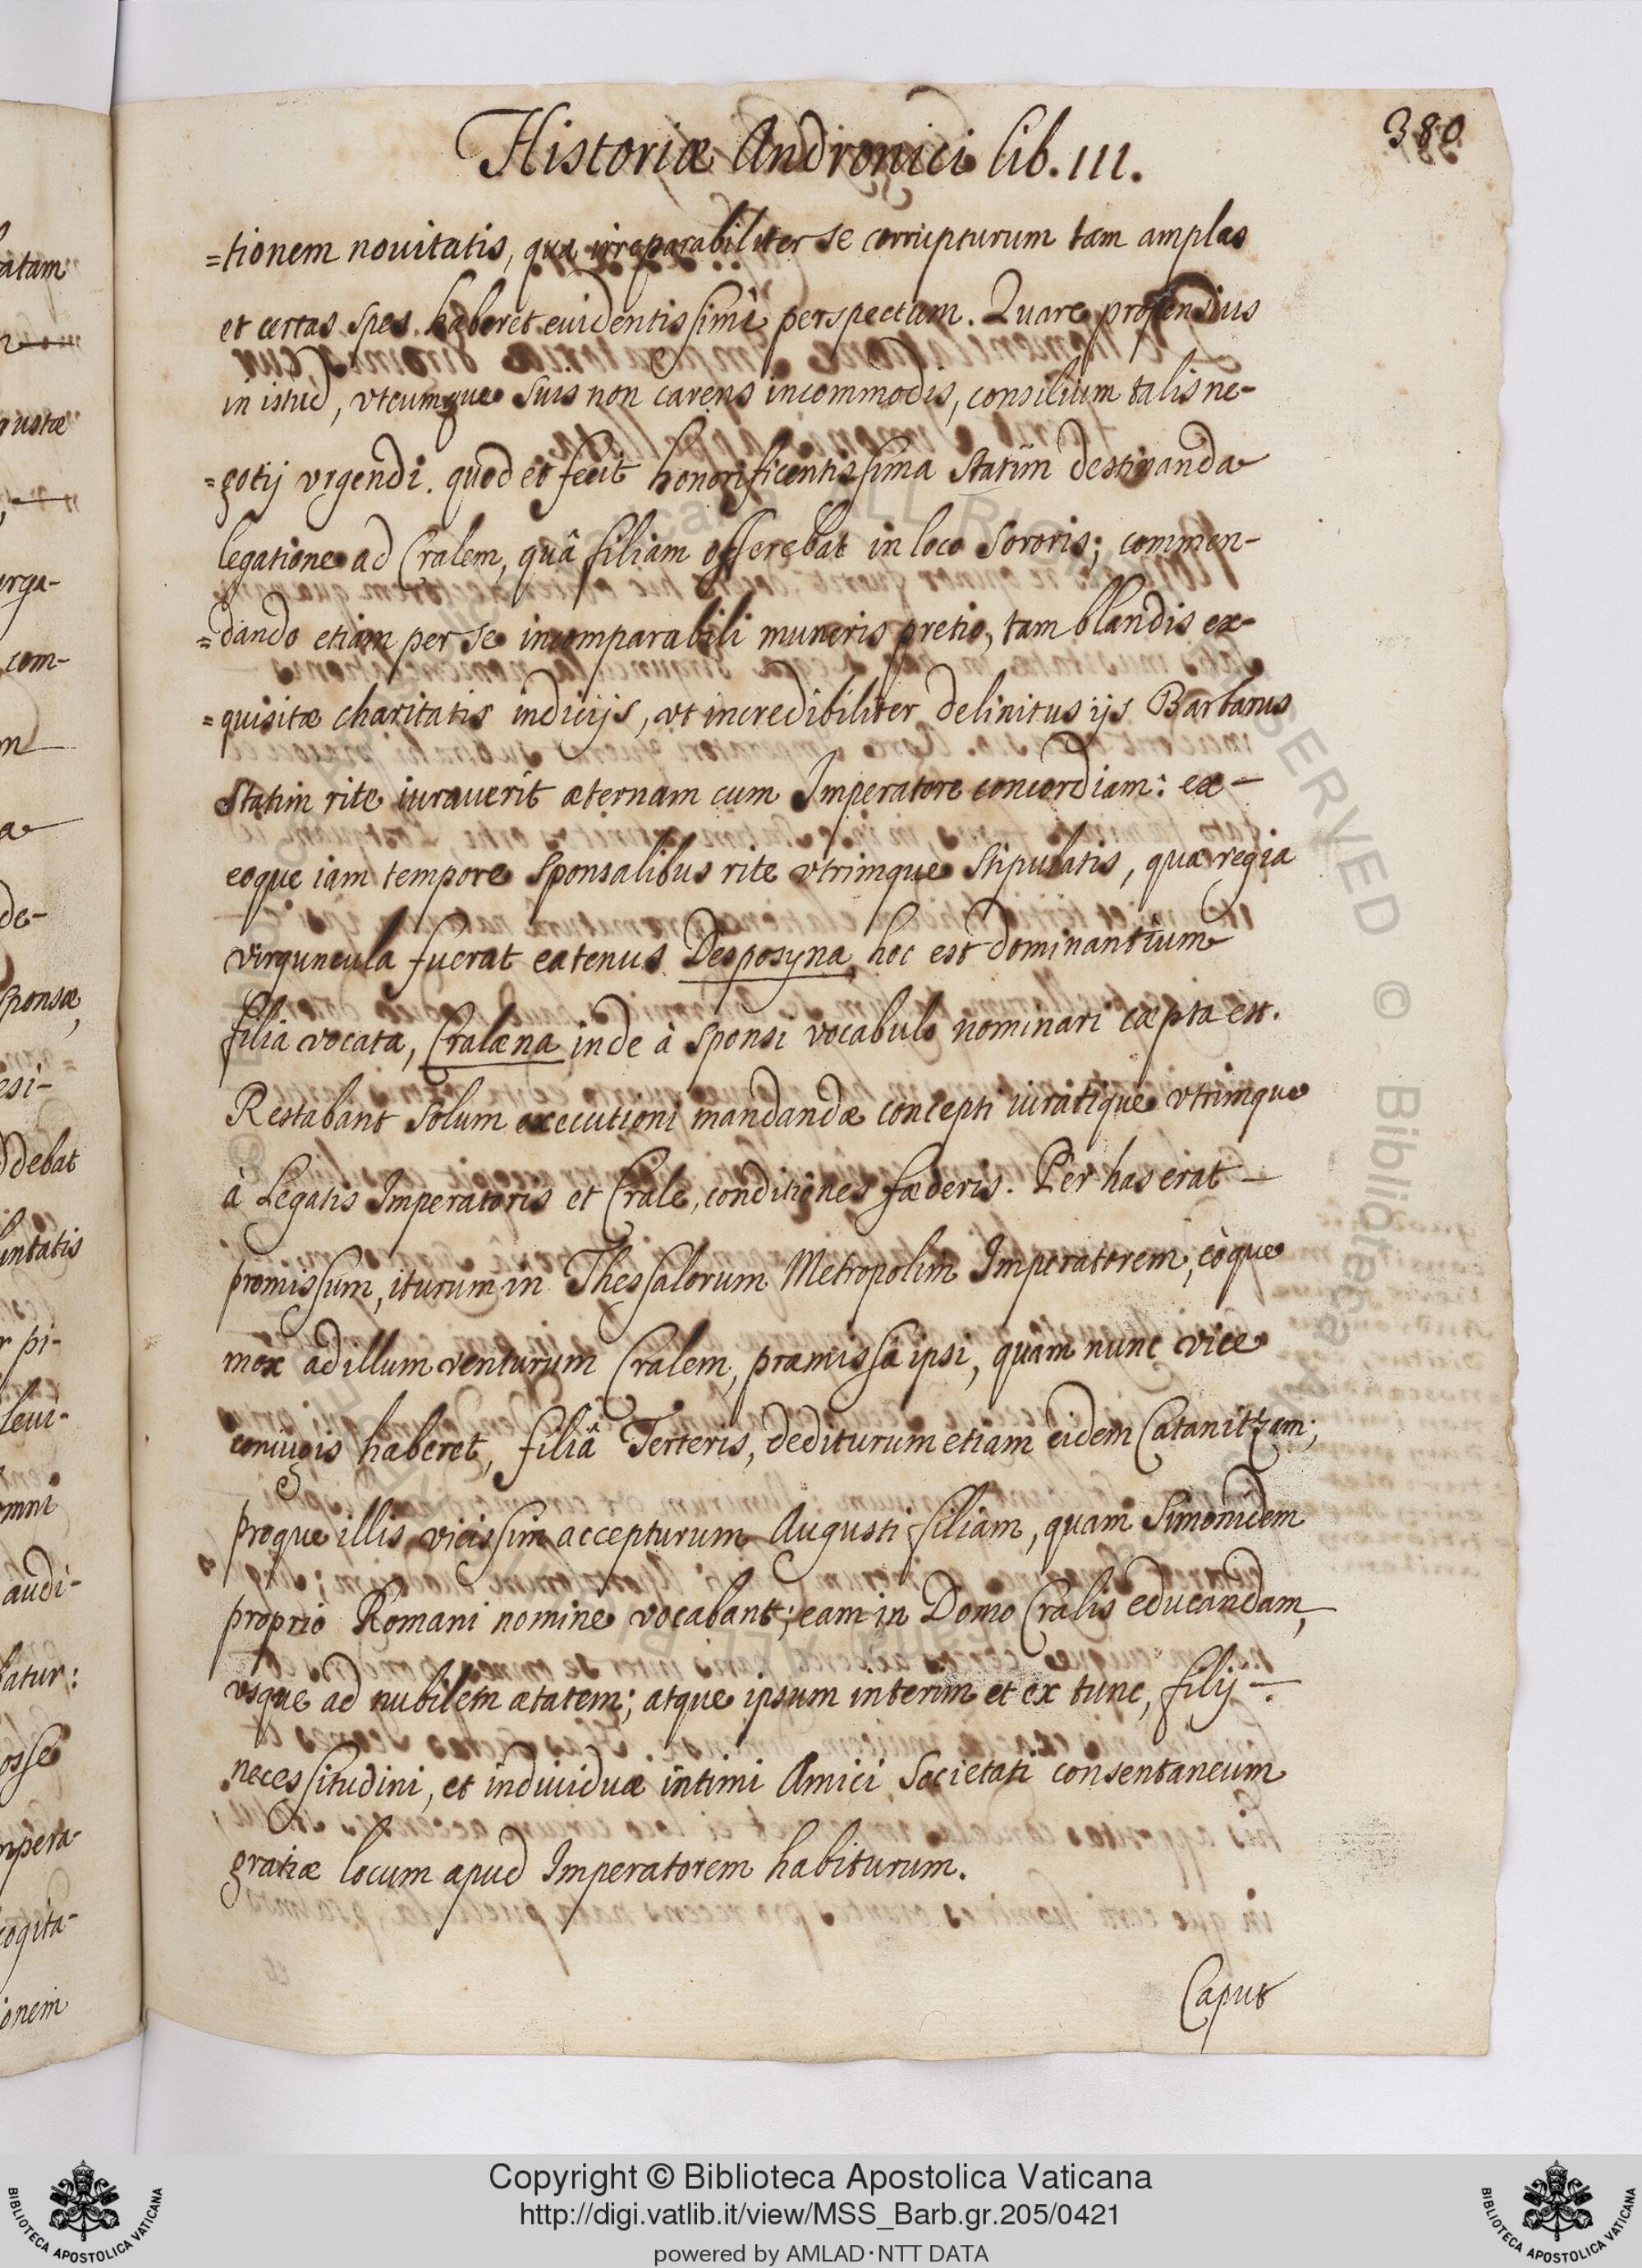 Historiæ Andronici lib. III.
380
=tionem nouitatis, qua irreparabiliter se corrupturum tam amplas
et certas spes haberet euidentissimè perspectum. Quare propensius
in istud, vtcumque suis non carens incommodis, consilium talis ne-
=gotij vrgendi. quod et fecit honorificentissima statim destinanda
legatione ad Cralem, quâ filiam offerebat in loco sororis; commen-
=dando etiam per se incomparabili muneris pretio, tam blandis ex-
=quisitæ charitatis indicijs, vt incredibiliter delinitus ijs Barbarus
statim rite iurauerit æternam cum Imperatore concordiam: ex-
eoque iam tempore sponsalibus rite vtrimque stipulatis, quæ regia
virguncula fuerat eatenus Desposyna, hoc est dominantium
filia vocata, Cralæna inde à sponsi vocabulo nominari cæpta est.
Restabant solum executioni mandandæ concepti iuratique vtrimque
à Legatis Imperatoris et Crale, conditiones fæderis. Per has erat
promissum, iturum in Thessalorum Metropolim Imperatorem, eòque
mox ad illum venturum Cralem, præmissa ipsi, quam nunc vice
coniugis haberet, filiâ Terteris, dediturum etiam eidem Catanitzam;
proque illis vicissim accepturum Augusti filiam, quam Simonidem
proprio Romani nomine vocabant; eam in Domo Cralis educandam,
vsque ad nubilem ætatem; atque ipsum interim et ex tunc, filij
necessitudini, et indiuiduæ intimi Amici Societati consentaneum
gratiæ locum apud Imperatorem habiturum.
Caput
atam
gustæ
erga-
com-
de-
sponsæ,
esi-
debat
untatis
r pi-
leui-
omni
audi-
batur:
osse
mpera-
cogita-
ionem
Copyright © Biblioteca Apostolica Vaticana
http://digi.vatlib.it/view/MSS_Barb.gr.205/0421
powered by AMLAD·NTT DATA
BIBLIOTECA APOSTOLICA VATICANA
BIBLIOTECA APOSTOLICA VATICANA